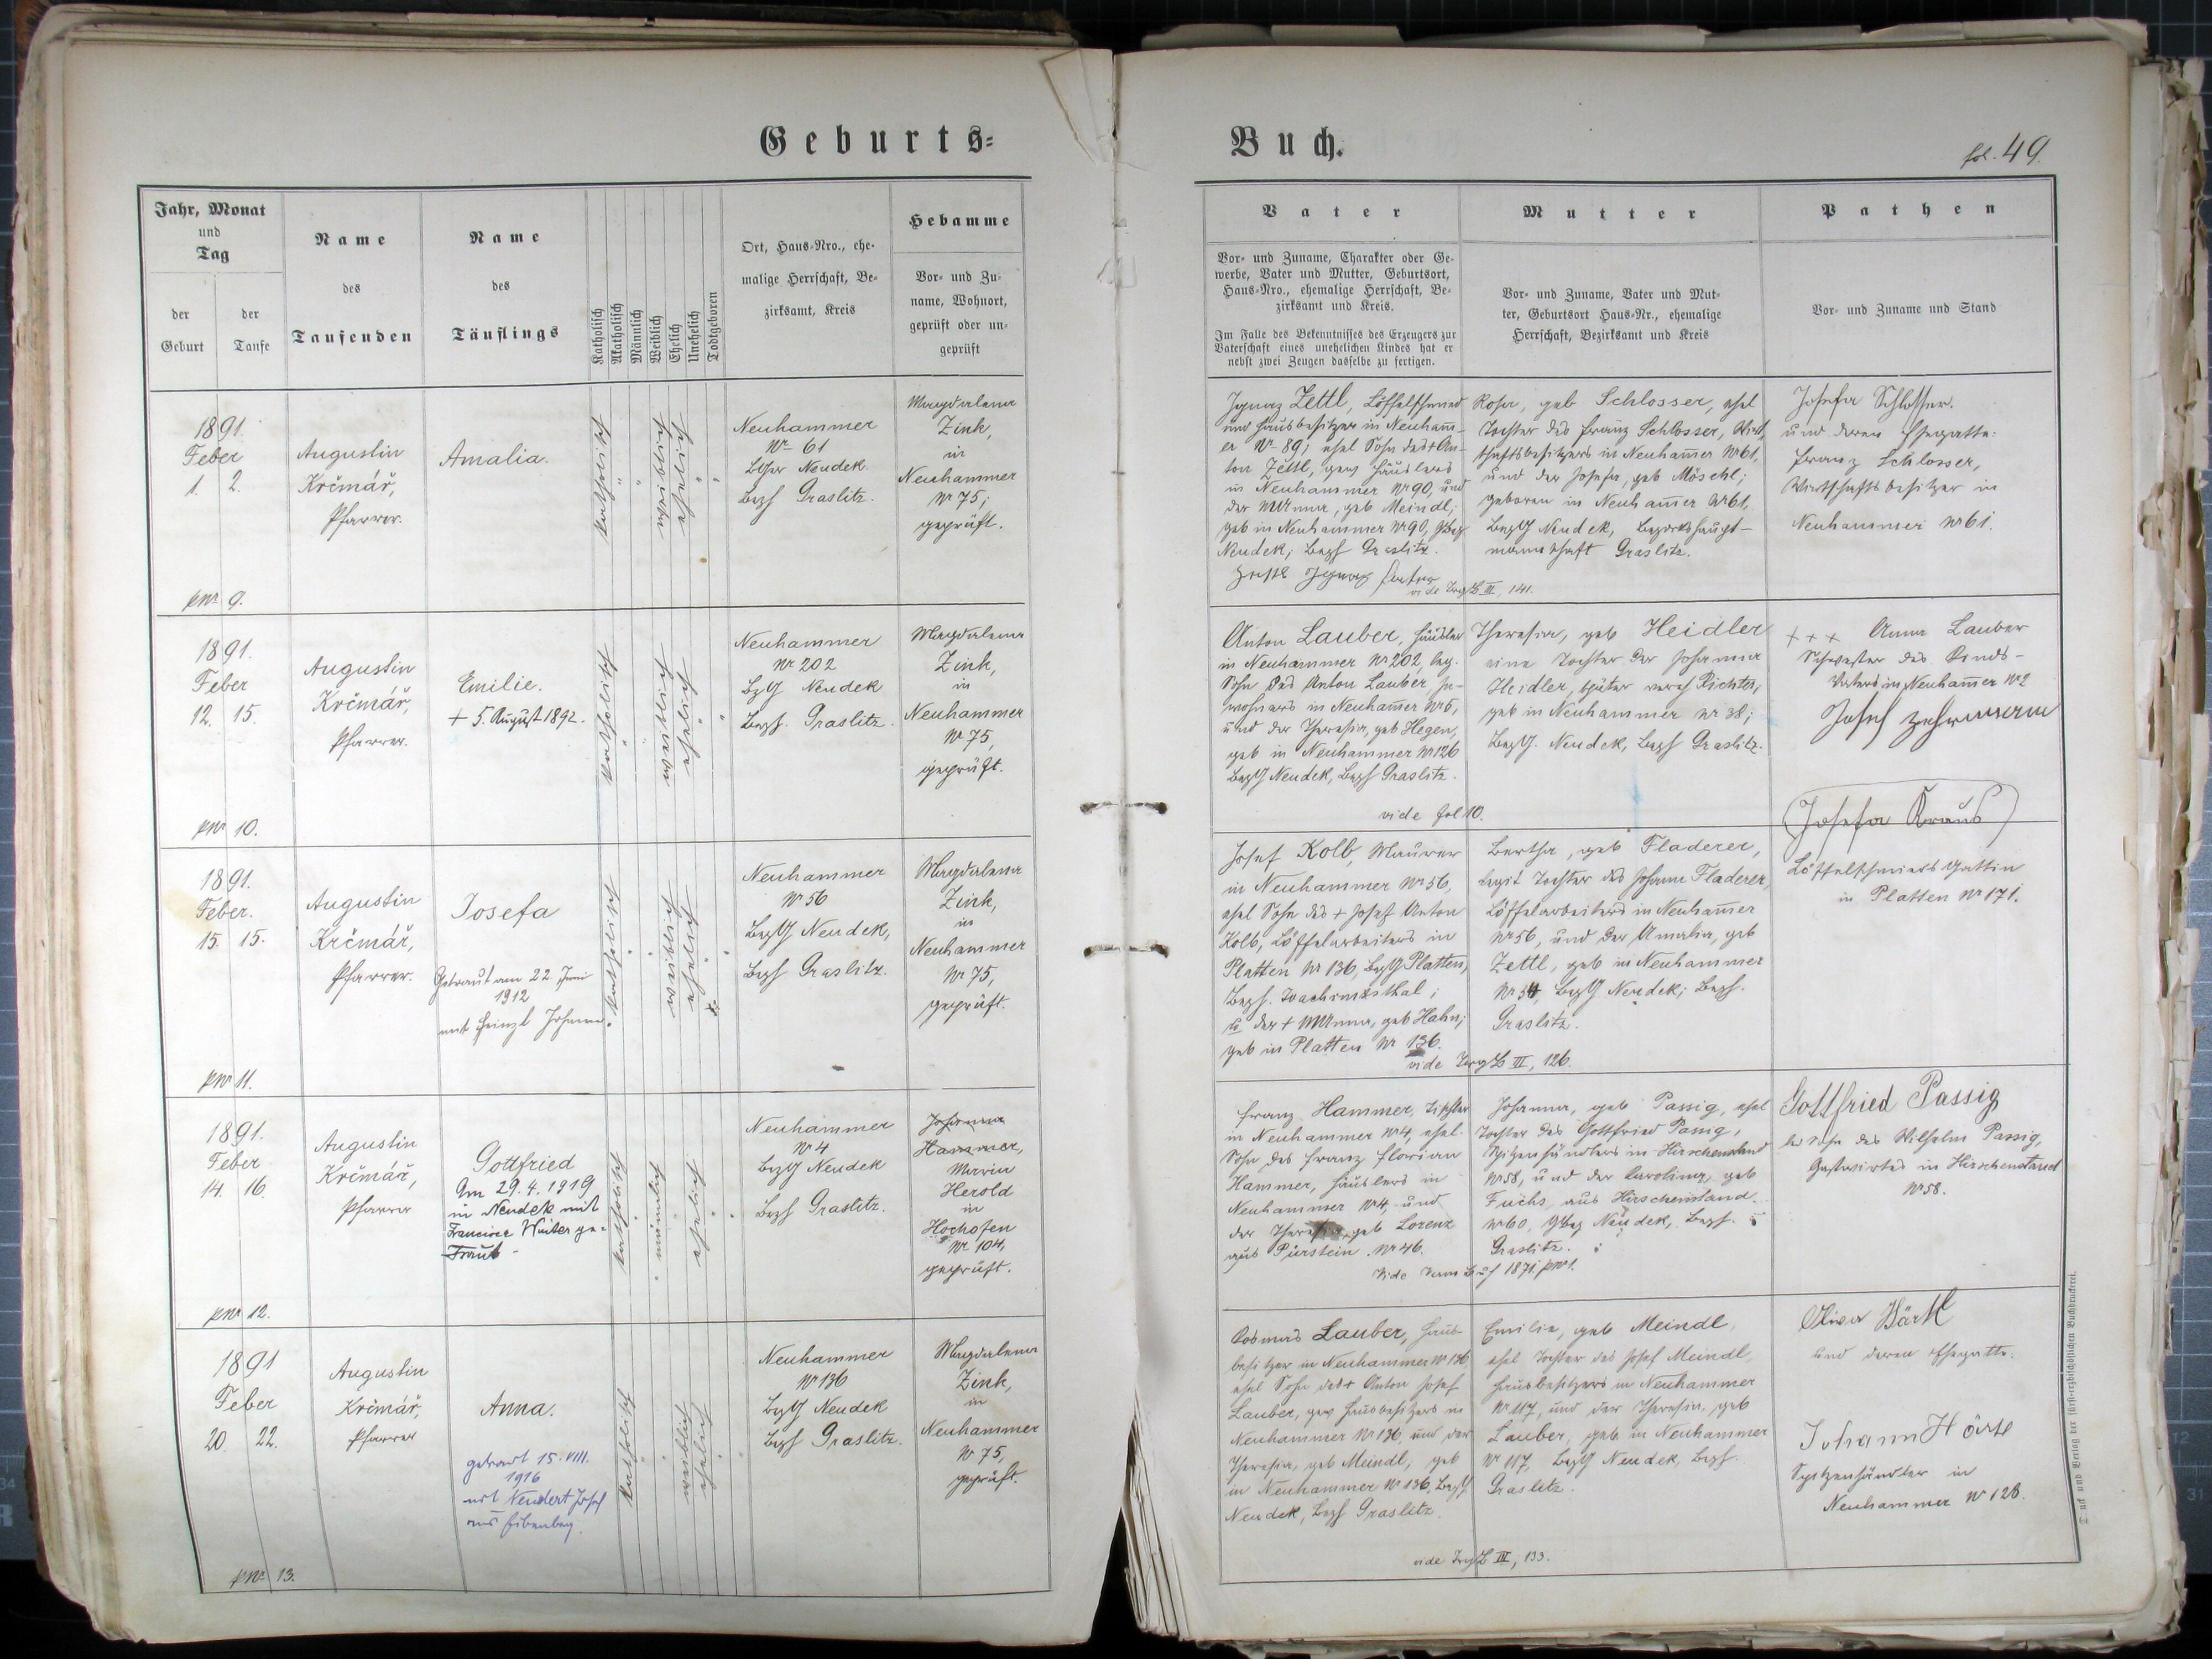 Geburts-
Buch.
fol. 49.
Jahr, Monat
und
Tag
der
Geburt
der
Taufe
Name
des
Taufenden
Name
des
Täuflings
Katholisch
Akatholisch
Männlich
Weiblich
Ehelich
Unehelich
Todtgeboren
Ort, Haus-Nro., ehe-
malige Herrschaft, Be-
zirksamt, Kreis
Hebamme
Vor- und Zu-
name, Wohnort,
geprüft oder un-
geprüft
Vater
Vor- und Zuname, Charakter oder Ge-
werbe, Vater und Mutter, Geburtsort,
Haus-Nro., ehemalige Herrschaft, Be-
zirksamt und Kreis.
Im Falle des Bekenntnisses des Erzeugers zur
Vaterschaft eines unehelichen Kindes hat er
nebst zwei Zeugen dasselbe zu fertigen.
Mutter
Vor- und Zuname, Vater und Mut-
ter, Geburtsort Haus-Nr., ehemalige
Herrschaft, Bezirksamt und Kreis
Pathen
Vor- und Zuname und Stand
1891.
Feber
1. 2.
pNr 9.
Augustin
Krčmář,
Pfarrer.
Amalia.
katholisch
weiblich
ehelich
Neuhammer
Nr 61
Neudek.
Bezh Graslitz.
Magdalena
Zink,
in
Neuhammer
Nr 75;
geprüft.
Ignaz Zettl, Löffelschmied
und Hausbesitzer in Neuham̄-
er Nr 89; ehel Sohn des + An-
ton Zettl, gew Häuslers
in Neuhammer Nr 90, und
der MAnna, geb Meindl;
geb in Neuhammer Nr 90,
Neudek; Bezh Graslitz.
Zettl Ignaz Vater
vide III, 141.
Rosa, geb Schlosser, ehel
Tochter des Franz Schlosser, Wirt-
schaftsbesitzers in Neuham̄er Nr 61,
und der Josefa, geb Möschl;
geboren in Neuham̄er Nr 61,
BezG Neudek, Bezirkshaupt-
mannschaft Graslitz.
Josefa Schlosser.
und deren Ehegatte:
Franz Schlosser,
Wirtschaftsbesitzer in
Neuhammer Nr 61.
1891.
Feber
12. 15.
pNr 10.
Augustin
Krčmář,
Pfarrer.
Emilie.
+ 5. August 1892.
katholisch
weiblich
ehelich
Neuhammer
Nr 202
BzG Neudek
Bezh. Graslitz.
Magdalena
Zink,
in
Neuhammer
Nr 75,
geprüft.
Anton Lauber, Häusler
in Neuhammer Nr 202, leg.
Sohn des Anton Lauber, In-
wohners in Neuham̄er Nr 6,
und der Theresia, geb Hegen,
geb in Neuhammer Nr 126
BezG Neudek, Bezh Graslitz.
vide fol 10.
Theresia, geb Heidler
eine Tochter der Johanna
Heidler, später Richter,
geb in Neuhammer Nr 38;
BezG. Neudek, Bezh Graslitz.
+++ Anna Lauber
Schwester des Kinds-
vaters in Neuham̄er Nr 2
Josef
1891.
Feber.
15. 15.
pNr 11.
Augustin
Krčmář,
Pfarrer.
Josefa
Getraut am 22. Juni
1912
mit Heinzl Johann.
katholisch
weiblich
ehelich
Neuhammer
Nr 56
BezG Neudek,
Bezh Graslitz.
Magdalena
Zink,
in
Neuhammer
Nr 75,
geprüft.
Josef Kolb, Maurer
in Neuhammer Nr 56,
ehel Sohn des + Josef Anton
Kolb, Löffelarbeiters in
Platten Nr 136, BezG Platten,
Bezh. Joachimsthal;
u. der + MAnna, geb Hahn;
geb in Platten Nr 136.
vide III, 126.
Bertha, geb Fladerer,
legit Tochter des Johann Fladerer,
Löffelarbeiters in Neuham̄er
Nr 56, und der Amalia, geb
Zettl, geb in Neuhammer
Nr 54, BezG Neudek; Bezh.
Graslitz.
Josefa Kraus
Löffelschmieds Gattin
in Platten Nr 171.
1891.
Feber
14. 16.
pNr 12.
Augustin
Krčmář,
Pfarrer
Gottfried
Am 29. 4. 1919
in Neudek mit
Winter ge-
traut -
katholisch
männlich
ehelich
Neuhammer
Nr 4
BezG Neudek
Bezh Graslitz.
Johanna
Hammer,
Maria
Herold
in
Hochofen
Nr 104,
geprüft.
Franz Hammer, Tischler
in Neuhammer Nr 4, ehel.
Sohn des Franz Florian
Hammer, Häuslers in
Neuhammer Nr 4, und
der Theresia, geb Lorenz
aus Pürstein Nr 46.
Vide 1871. pNr 1.
Johanna, geb Passig, ehel
Tochter des Gottfried Passig,
Spitzenhändlers in Hirschenstand
Nr 58, und der Carolina, geb
Fuchs, aus Hirschenstand
Nr 60, Neudek, Bezh.
Graslitz.
Gottfried Passig
led Sohn des Wilhelm Passig,
Gastwirtes in Hirschenstand
Nr 58.
1891
Feber
20. 22.
pNr 13.
Augustin
Krčmář,
Pfarrer
Anna.
getraut 15. VIII.
1916
mit Neudert Josef
aus Eibenberg.
katholisch
weiblich
ehelich
Neuhammer
Nr 136
BezG Neudek
Bezh Graslitz.
Magdalena
Zink,
in
Neuhammer
Nr 75,
geprüft.
Cosmas Lauber, Haus-
besitzer in Neuhammer Nr 136
ehel Sohn des + Anton Josef
Lauber, gew Hausbesitzers in
Neuhammer Nr 136, und der
Theresia, geb Meindl, geb
in Neuhammer Nr 136, BezG
Neudek, Bezh Graslitz.
vide III, 133.
Emilie, geb Meindl,
ehel Tochter des Josef Meindl,
Hausbesitzers in Neuhammer
Nr 117, und der Theresia, geb
Lauber, geb in Neuhammer
Nr 117, BezG Neudek, Bezh.
Graslitz.
und deren Ehegatte.
Johann
Spitzenhändler in
Neuhammer Nr 128.
Druck und Verlag der fürst-erzbischöflichen Buchdruckerei.